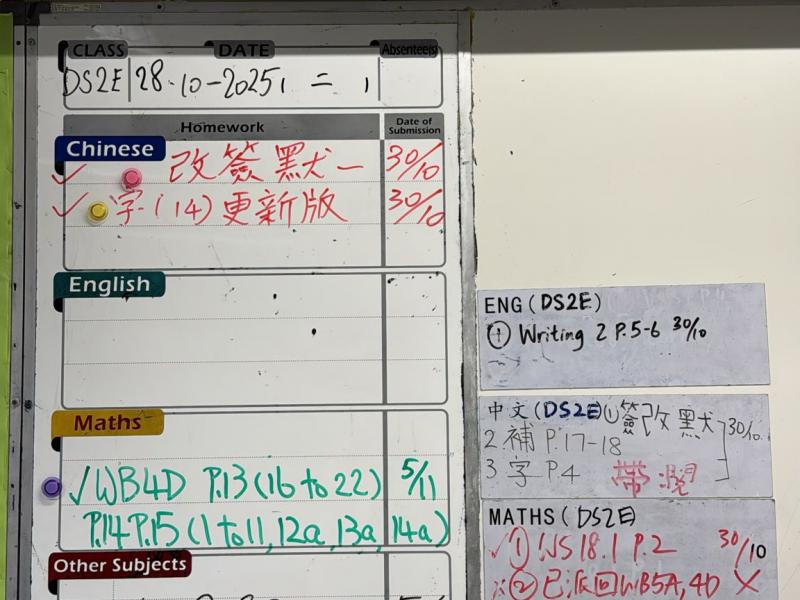 CLASS DATE Absentee(s)
DS2E 28.10-2025, = ,
Homework Date of Submission
Chinese
✓ 改簽默一 30/10
✓ 字(14)更新版 30/10
English
Maths
✓WB4D P.13(16 to 22) 5/11
P.14 P.15 (1 to 11, 12a, 13a, 14a)
Other Subjects
ENG (DS2E)
① Writing 2 P.5-6 30/10
中文(DS2E) ①簽改默 30/10
2.補 P.17-18
3 字 P.4 帶
MATHS (DS2E)
✓① WS 18.1 P.2 30/10
② 已派回WB5A, 4D X